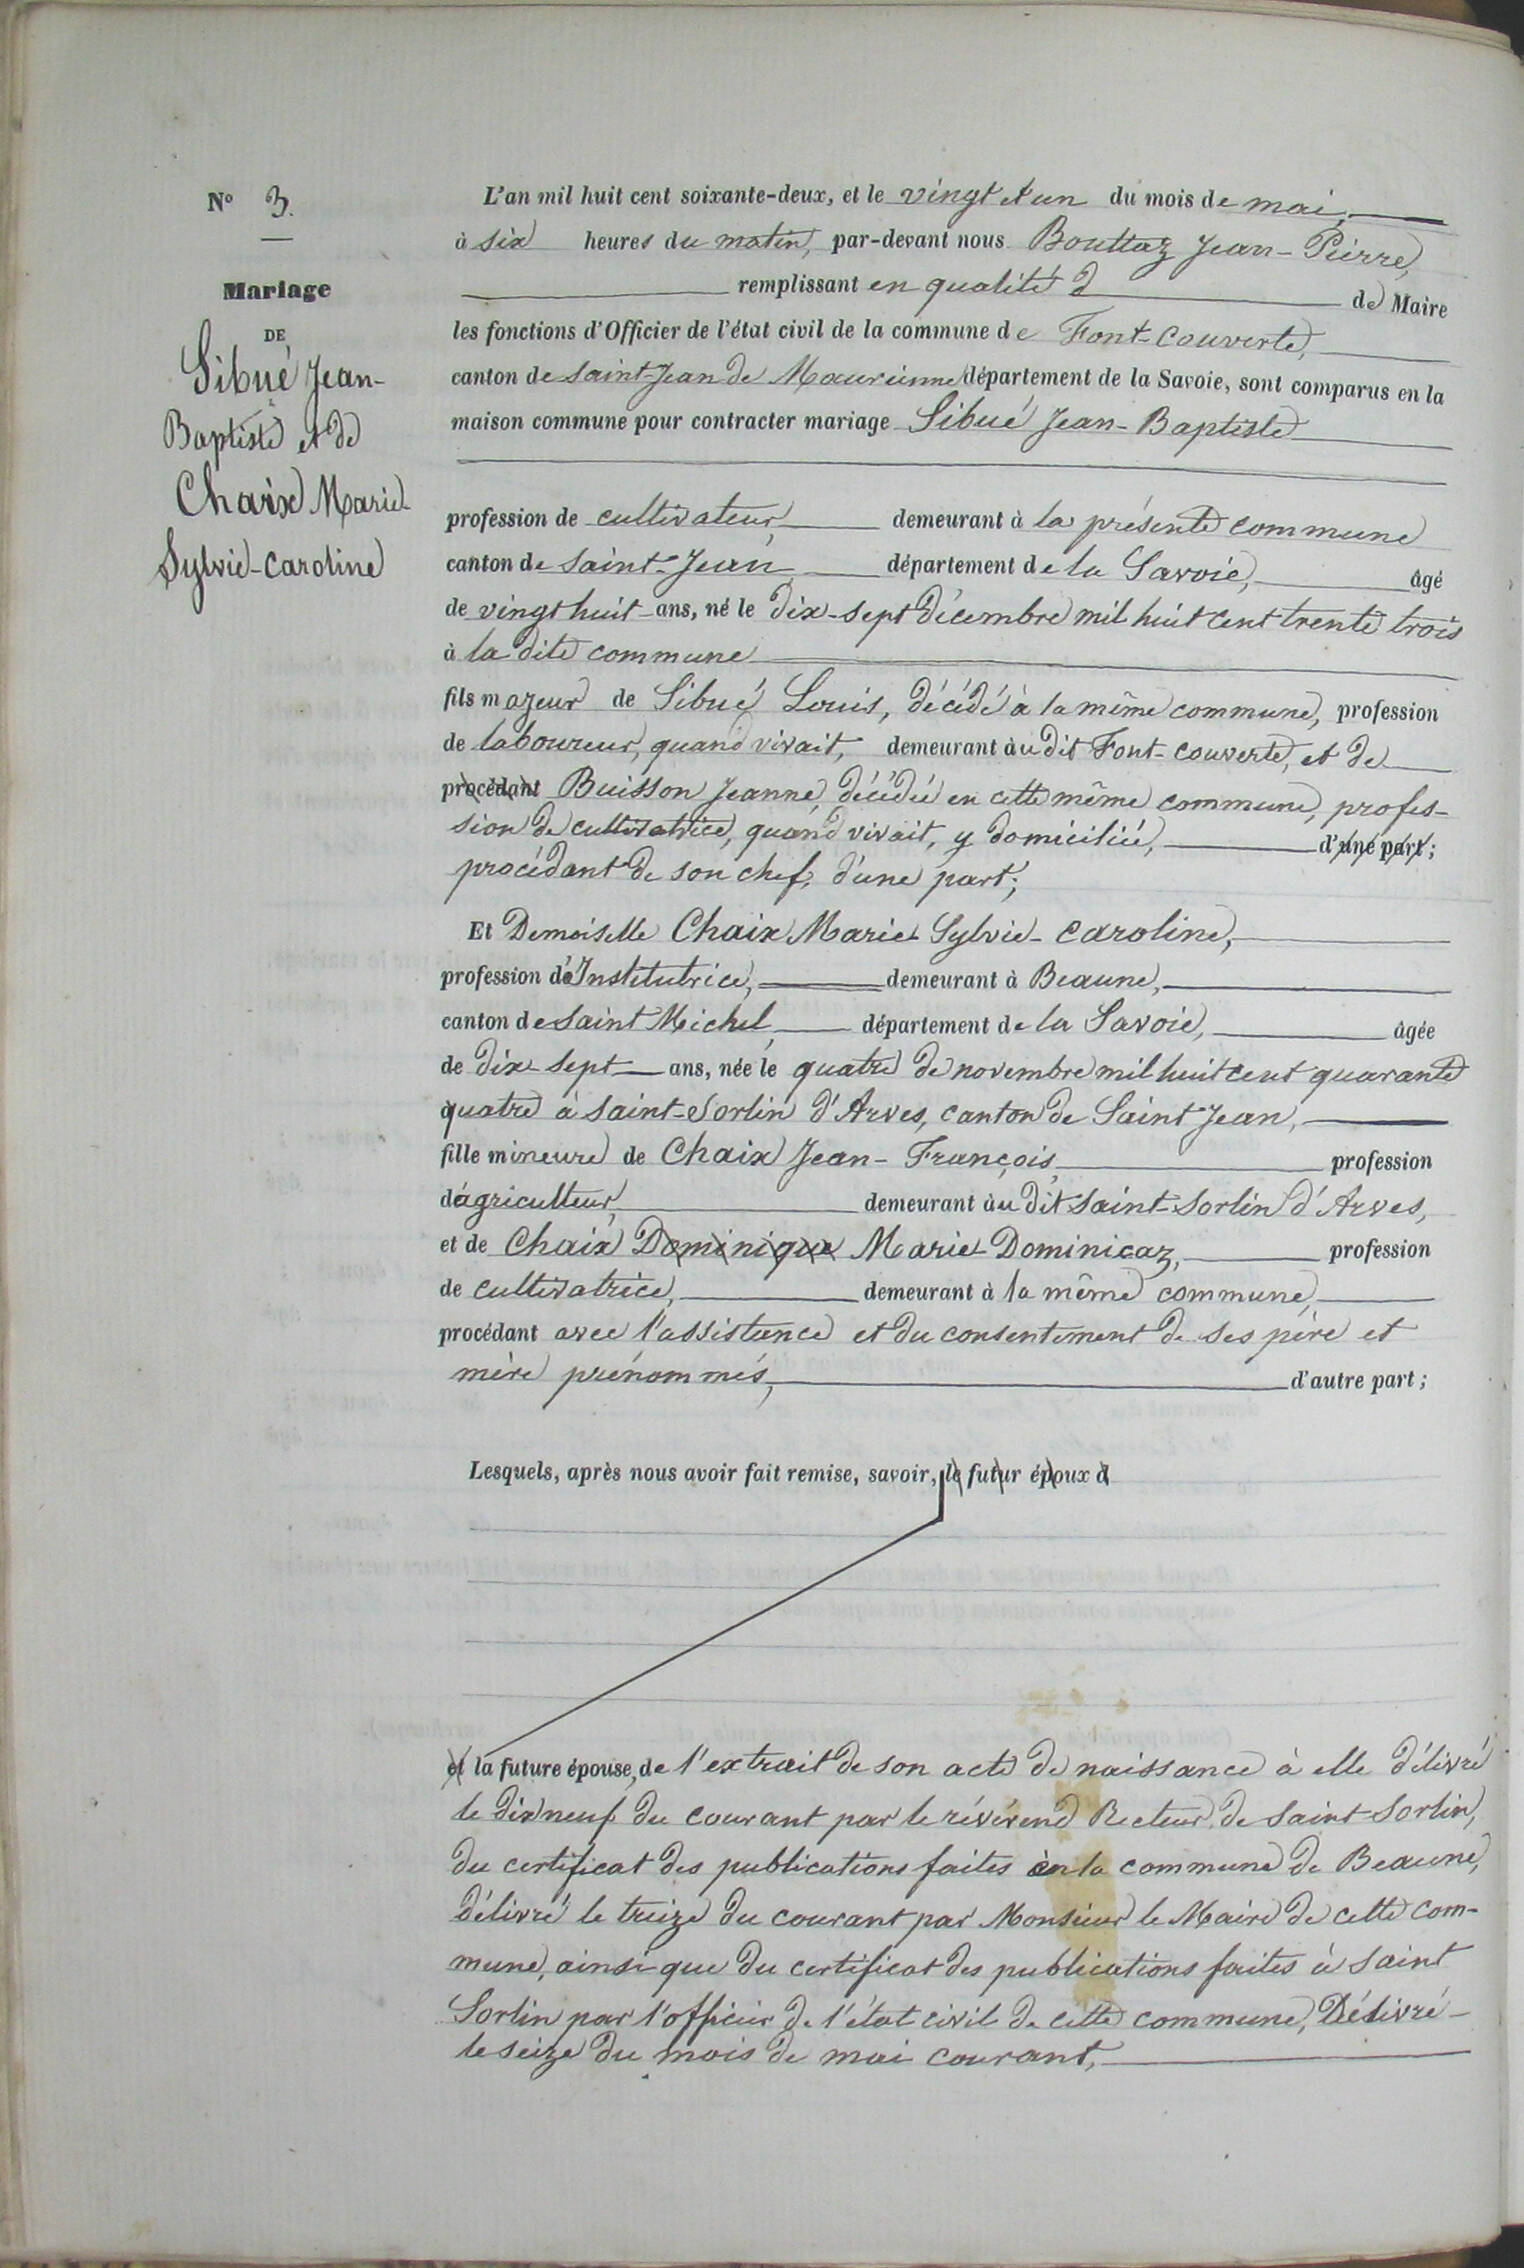 N° 3.
Mariage
DE
Sibué Jean-
Baptiste et de
Chaix Marie-
Sylvie-Caroline
L'an mil huit cent soixante-deux, et le vingt et un du mois de mai,
à six heures du matin, par-devant nous Bouttaz Jean-Pierre,
remplissant en qualité d de Maire
les fonctions d'Officier de l'état civil de la commune de Font-Couverte,
canton de Saint-Jean de Maurienne département de la Savoie, sont comparus en la
maison commune pour contracter mariage Sibué Jean-Baptiste
profession de cultivateur, demeurant à la présente commune
canton de Saint-Jean, département de la Savoie, âgé
de vingt huit ans, né le dix-sept décembre mil huit cent trente trois
à la dite commune
fils majeur de Sibué Louis, décédé à la même commune, profession
de laboureur, quand vivait, demeurant au dit Font-couverte, et de
procédant Buisson Jeanne, décédée en cette même commune, profes-
sion de cultivatrice, quand vivait, y domiciliée, d'une part;
procédant de son chef, d'une part;
Et Demoiselle Chaix Marie Sylvie-Caroline,
profession d'Institutrice, demeurant à Beaune,
canton de Saint Michel, département de la Savoie, âgée
de dix sept ans, née le quatre de novembre mil huit cent quarante
quatre à Saint-Sorlin d'Arves, canton de Saint Jean,
fille mineure de Chaix Jean-François, profession
d'agriculteur, demeurant au dit Saint-Sorlin d'Arves,
et de Chaix Dominique Marie Dominicaz, profession
de cultivatrice, demeurant à la même commune,
procédant avec l'assistance et du consentement de ses père et
mère prénommés, d'autre part;
Lesquels, après nous avoir fait remise, savoir, le futur époux d
et la future épouse, de l'extrait de son acte de naissance à elle délivré
le dix neuf du courant par le révérend Recteur de Saint-Sorlin,
du certificat des publications faites en la commune de Beaune,
délivré le treize du courant par Monsieur le Maire de cette com-
mune, ainsi que du certificat des publications faites à Saint
Sorlin par l'officier de l'état civil de cette commune, Délivré
le seize du mois de mai courant,